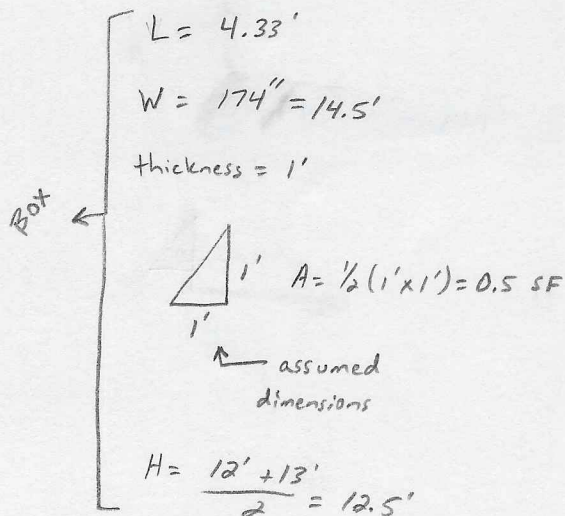 L = 4.33'
W = 174" = 14.5'
thickness = 1'
BOX
1' A = 1/2 (1' x 1') = 0.5 SF
1'
assumed
dimensions
H = 12' + 13'
2 = 12.5'